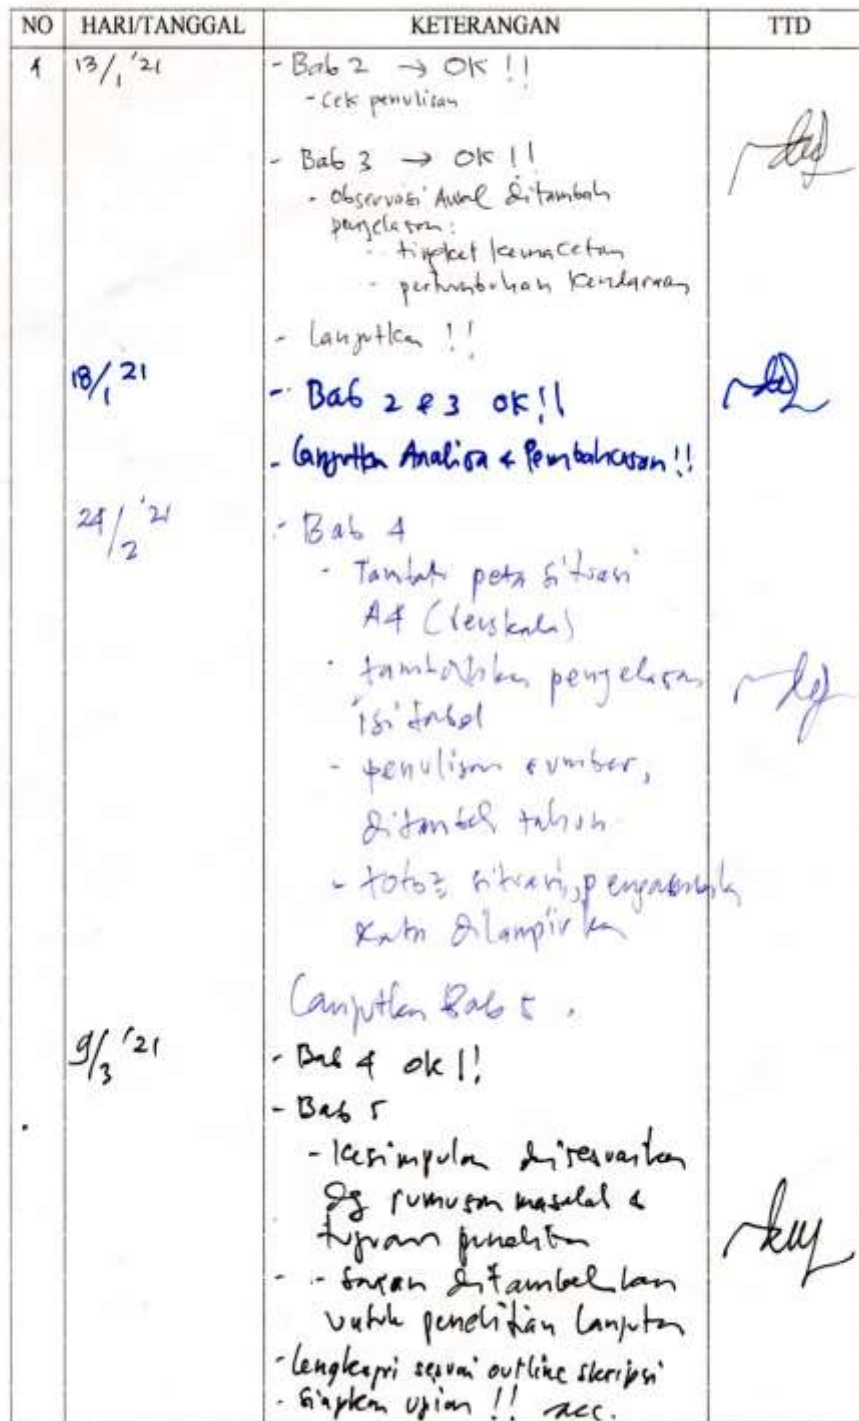 NO HARI/TANGGAL KETERANGAN TTD
1 13/1 '21 - Bab 2 → OK !!
- Cek penulisan
- Bab 3 → OK !!
- Observasi Awal ditambah
penjelasan:
- tingkat kemacetan
- pertumbuhan kendaraan
- Lanjutkan !!
18/1 21 - Bab 2 & 3 OK!!
- Lanjutkan Analisa & Pembahasan!!
24/2 '21 - Bab 4
- Tambah peta situasi
A4 (terskala)
- tambahkan penjelasan
isi tabel
- penulisan sumber,
ditambah tahun
- foto2 situasi, pengambilan
data dilampirkan
Lanjutkan Bab 5.
9/3 '21 - Bab 4 OK!!
- Bab 5
- Kesimpulan disesuaikan
dg rumusan masalah &
tujuan penelitian
- Saran ditambahkan
untuk penelitian lanjutan
- Lengkapi sesuai outline skripsi
- Siapkan ujian !! acc.